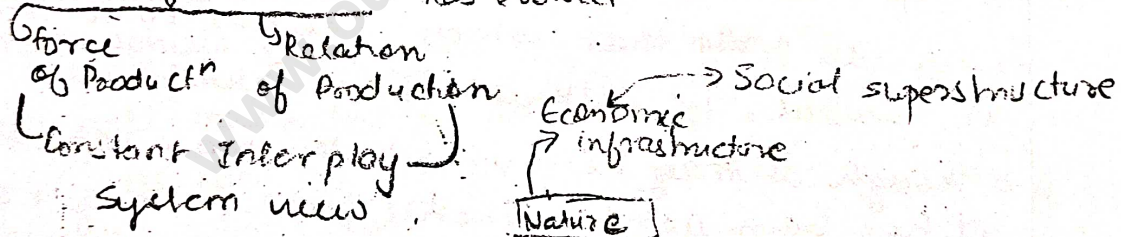 Force
of Productⁿ
Relation
of Production
Constant Interplay
System view.
Economic
infrastructure
Social superstructure
Nature
www.